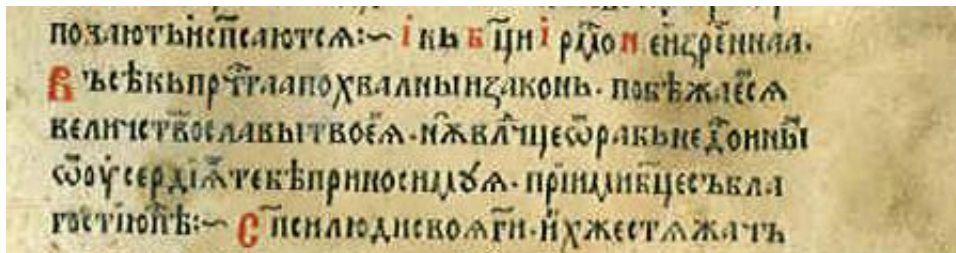 поꙁаютьиспс҃аютсѧ:~ і кь б҃ци і рм҃о н҃ еиꙁрⷣеннаа.
Всѣкьпрчⷭ҇таапохвалныиꙁаконь. побѣжⷣаеⷮсѧ
величствослави твоеѧ. нѫвлⷣчцеѿракьнедⷭ҇оины
ѿꙋсердіѧтебѣприносимꙋѧ. пріимибц҃есьбла
гостіюпѣ:~ Сп҃силюдисвоѧгⷭ҇и. ихжестѧжать